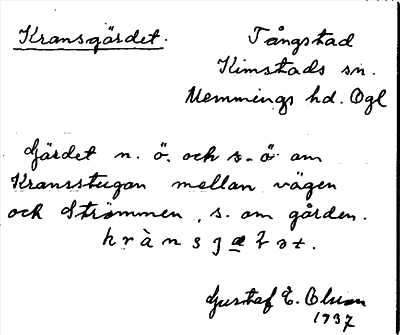 Kransgärdet.
Tångstad
Kimstads sn.
Memmings hd. Ögl
Gärdet n. ö. och s. ö om
Kransstugan mellan vägen
och Strömmen, s. om gården.
Gustaf E. Olsson
1937